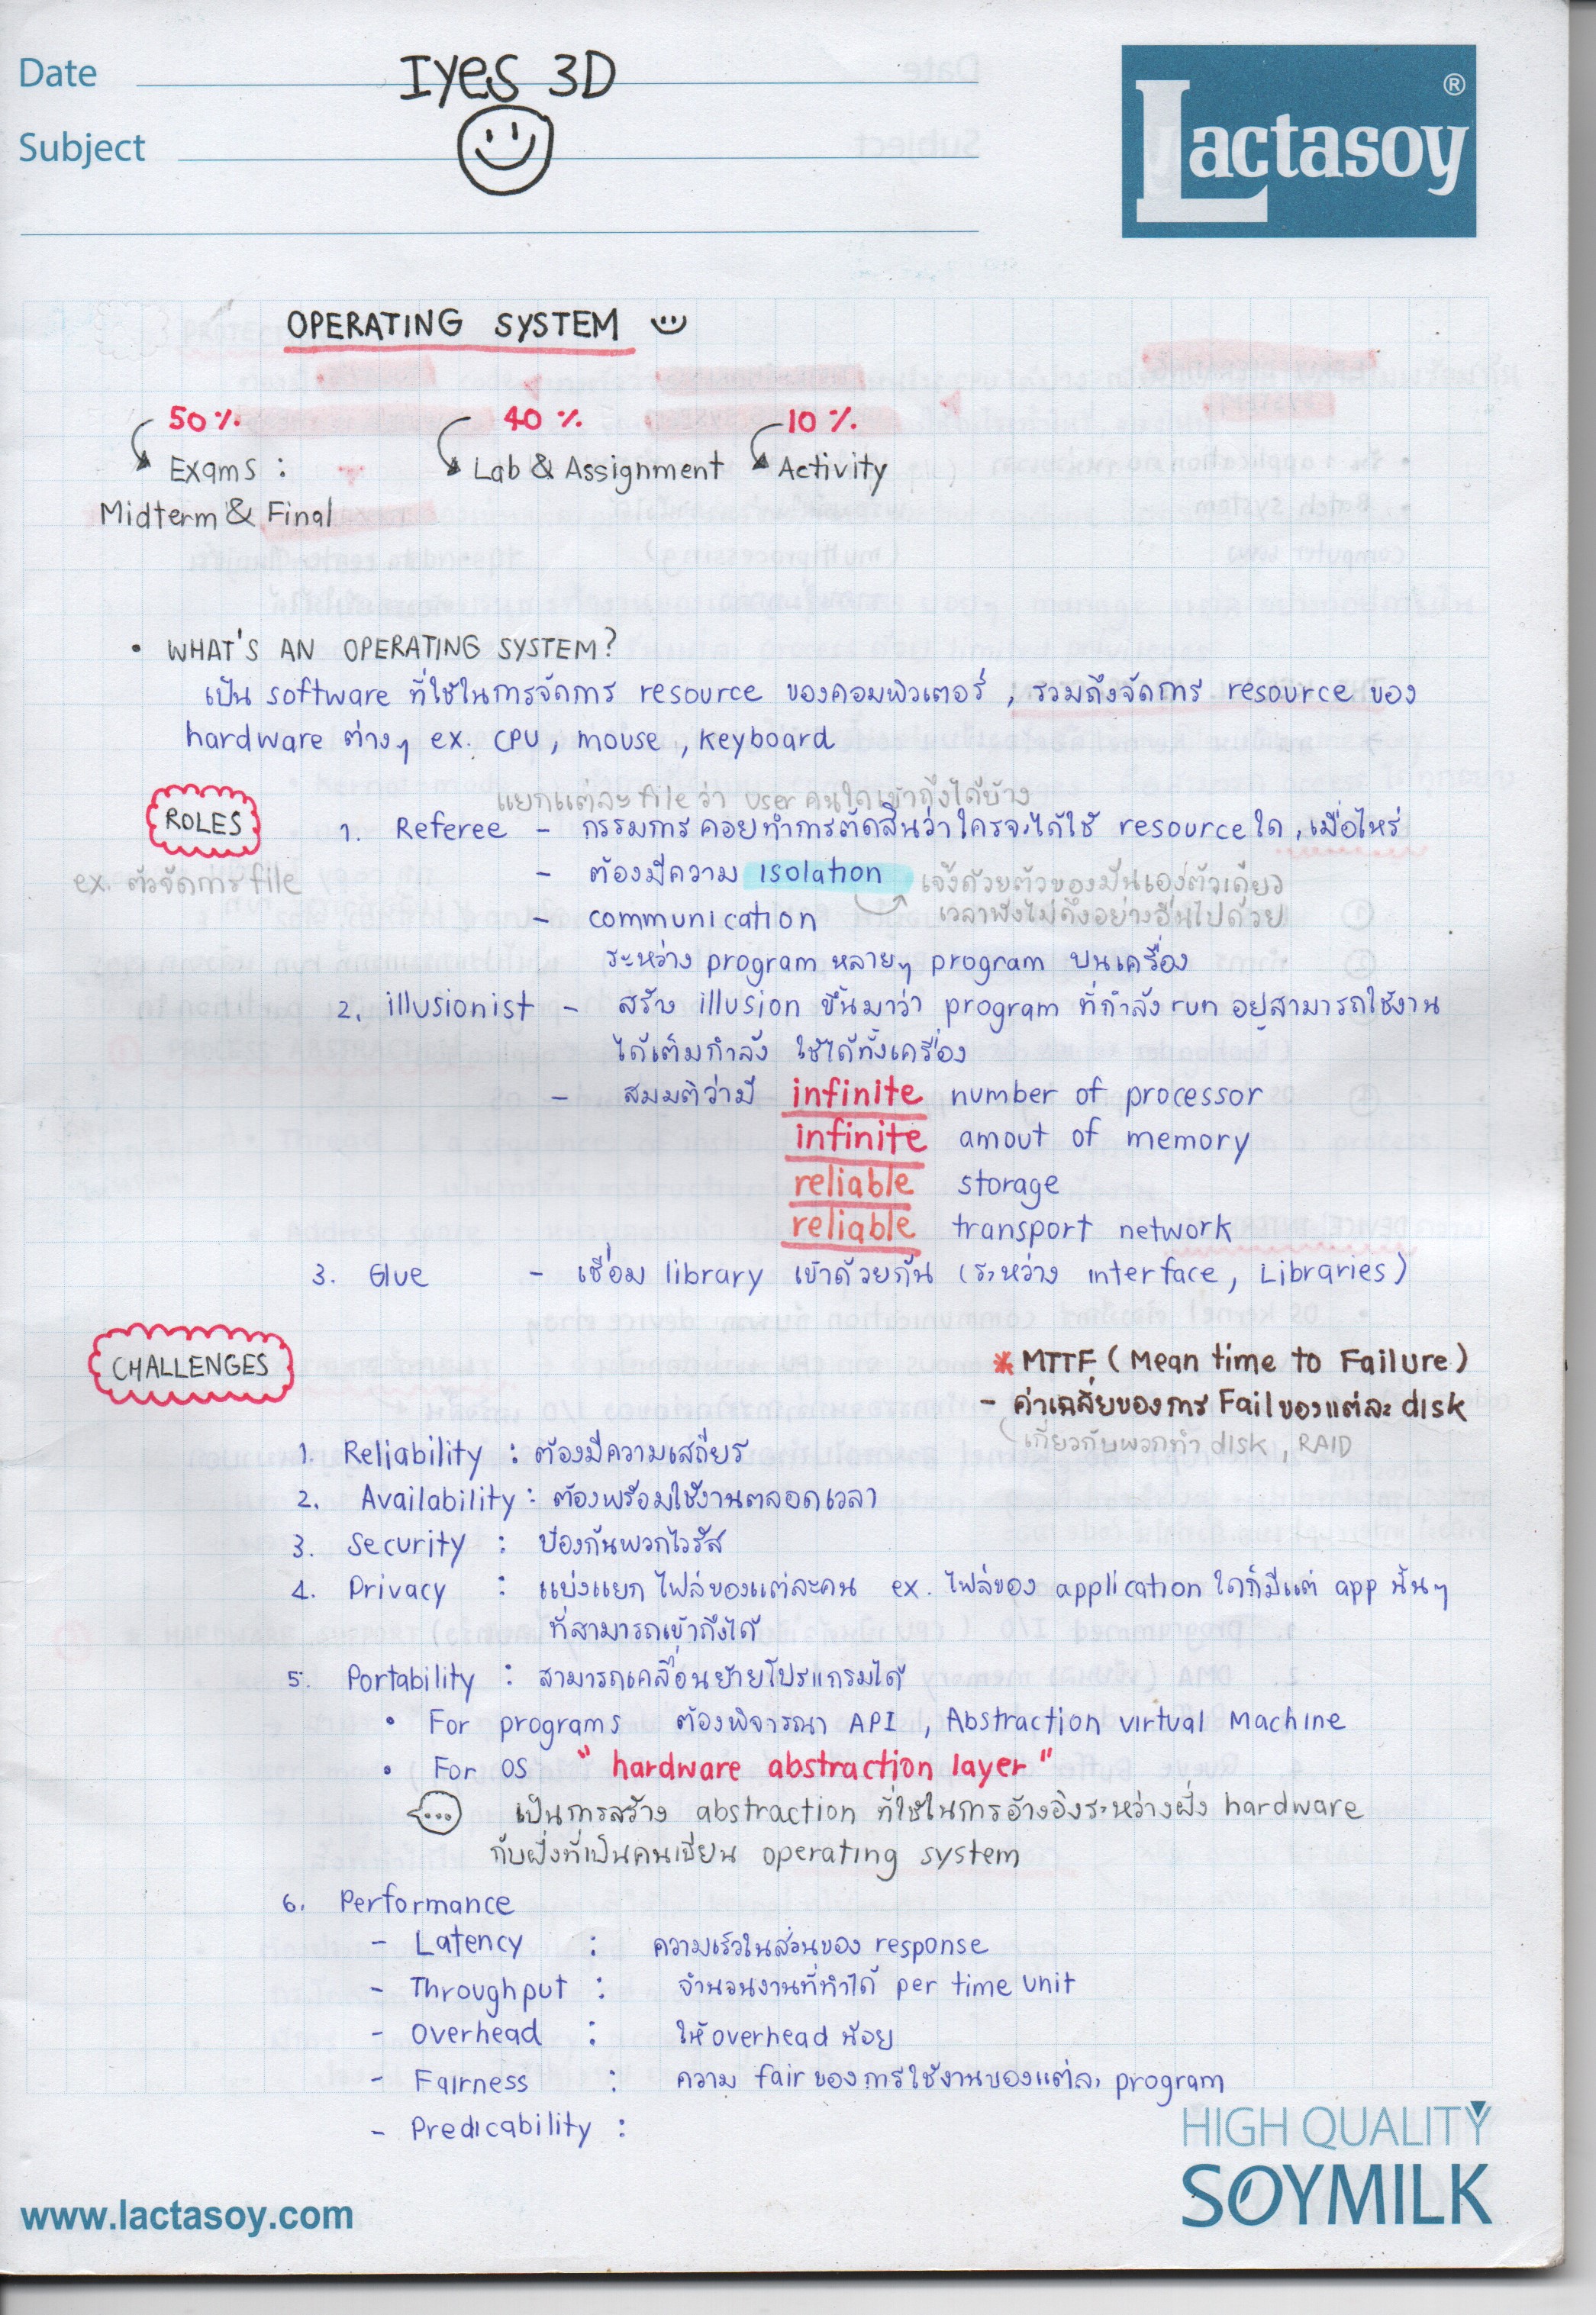 Date
Iyes 3D
Subject
Lactasoy®
OPERATING SYSTEM
50% 40% 10%
Exams : Lab & Assignment Activity
Midterm & Final
• WHAT'S AN OPERATING SYSTEM?
เป็น software ที่ใช้ในการจัดการ resource ของคอมพิวเตอร์ , รวมถึงจัดการ resource ของ
hardware ต่างๆ ex. CPU, mouse, keyboard
แยกแต่ละ file ว่า user คนใดเข้าถึงได้บ้าง
ROLES
1. Referee - กรรมการ คอยทำการตัดสินว่าใครจะได้ใช้ resource ใด , เมื่อไหร่
ex. ตัวจัดการ file
- ต้องมีความ isolation
เจ๊งด้วยตัวของมันเองตัวเดียว
เวลาพังไม่ดึงอย่างอื่นไปด้วย
- communication
ระหว่าง program หลายๆ program บนเครื่อง
2. illusionist - สร้าง illusion ขึ้นมาว่า program ที่กำลัง run อยู่สามารถใช้งาน
ได้เต็มกำลัง ใช้ได้ทั้งเครื่อง
- สมมติว่ามี infinite number of processor
infinite amout of memory
reliable storage
reliable transport network
3. Glue - เชื่อม library เข้าด้วยกัน (ระหว่าง interface, Libraries)
CHALLENGES
* MTTF (Mean time to Failure)
- ค่าเฉลี่ยของการ Fail ของแต่ละ disk
เกี่ยวกับพวกทำ disk, RAID
1. Reliability : ต้องมีความเสถียร
2. Availability : ต้องพร้อมใช้งานตลอดเวลา
3. Security : ป้องกันพวกไวรัส
4. Privacy : แบ่งแยก ไฟล์ของแต่ละคน ex. ไฟล์ของ application ใดก็มีแต่ app นั้นๆ
ที่สามารถเข้าถึงได้
5. Portability : สามารถเคลื่อนย้ายโปรแกรมได้
• For programs ต้องพิจารณา API , Abstraction virtual Machine
• For OS " hardware abstraction layer "
... เป็นการสร้าง abstraction ที่ใช้ในการอ้างอิงระหว่างฝั่ง hardware
กับฝั่งที่เป็นคนเขียน operating system
6. Performance
- Latency : ความเร็วในส่วนของ response
- Throughput : จำนวนงานที่ทำได้ per time unit
- Overhead : ให้ overhead น้อย
- Fairness : ความ fair ของการใช้งานของแต่ละ program
- Predicability :
HIGH QUALITY
SOYMILK
www.lactasoy.com